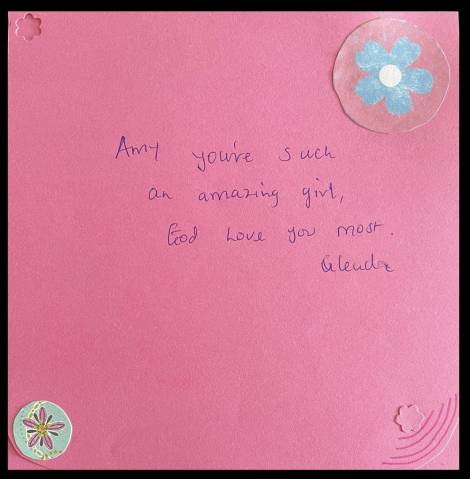 Amy you're such
an amazing girl,
God Love you most.
Glenda